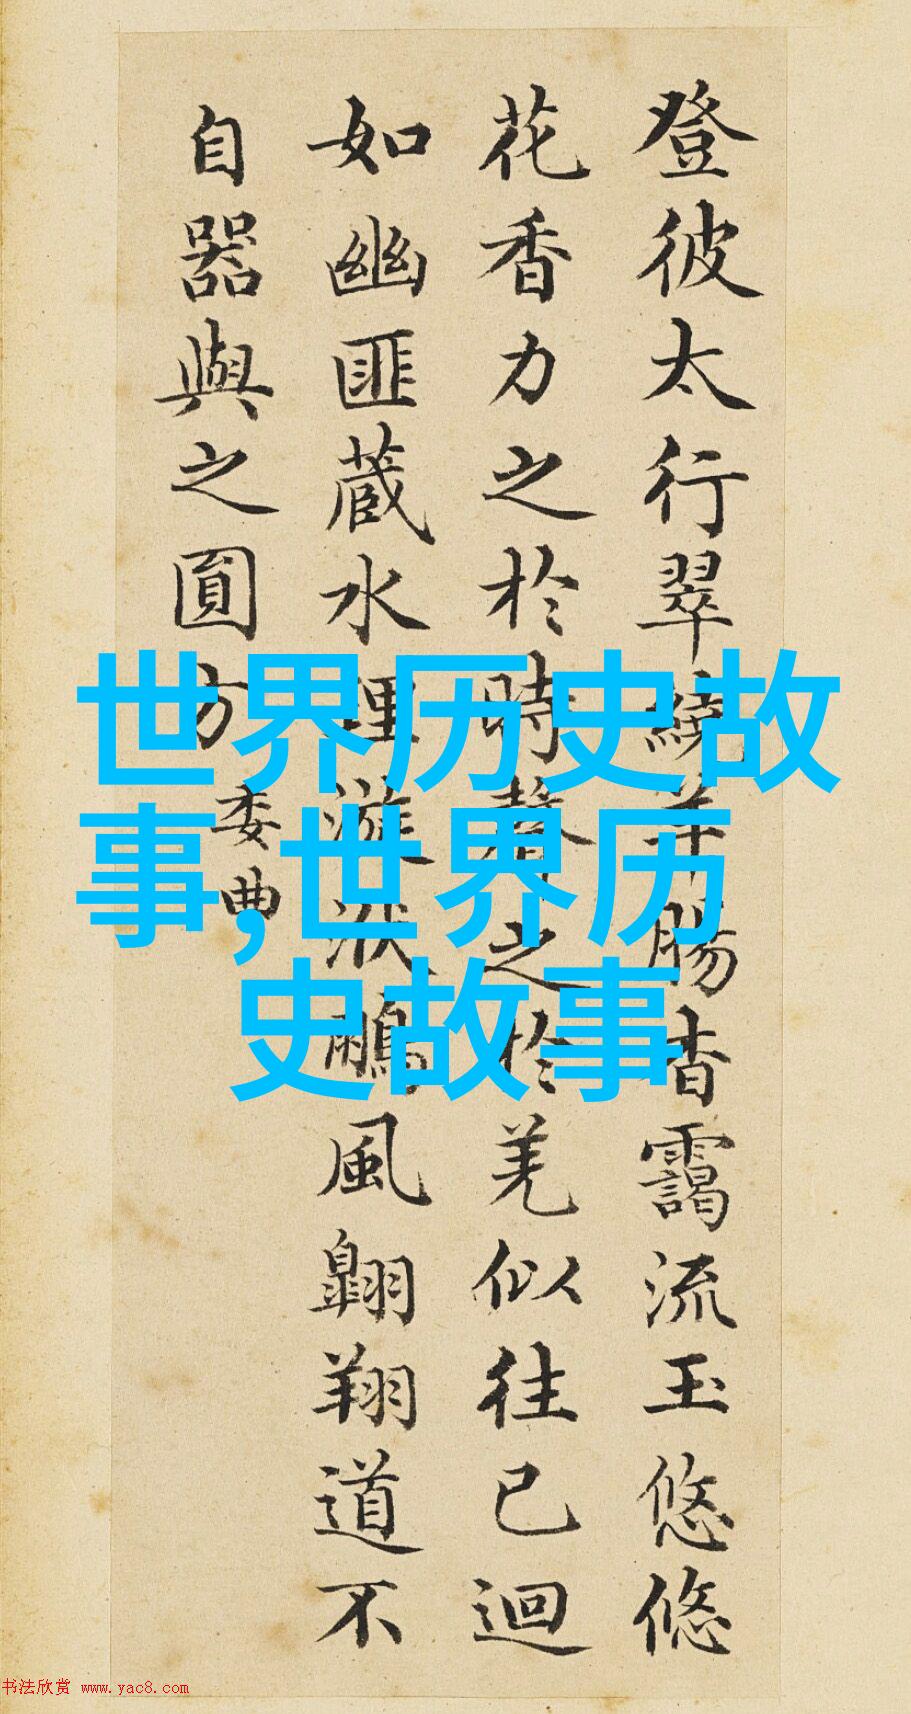 登彼太行翠繞羊腸杳靄流玉悠悠
花香力之於時聲之於羌似往已迴
如幽匪藏水理漩洑鵬風翱翔道不
自器與之圓方
委曲
世界历史故
事,世界历
史故事
书法欣赏 www.yac8.com